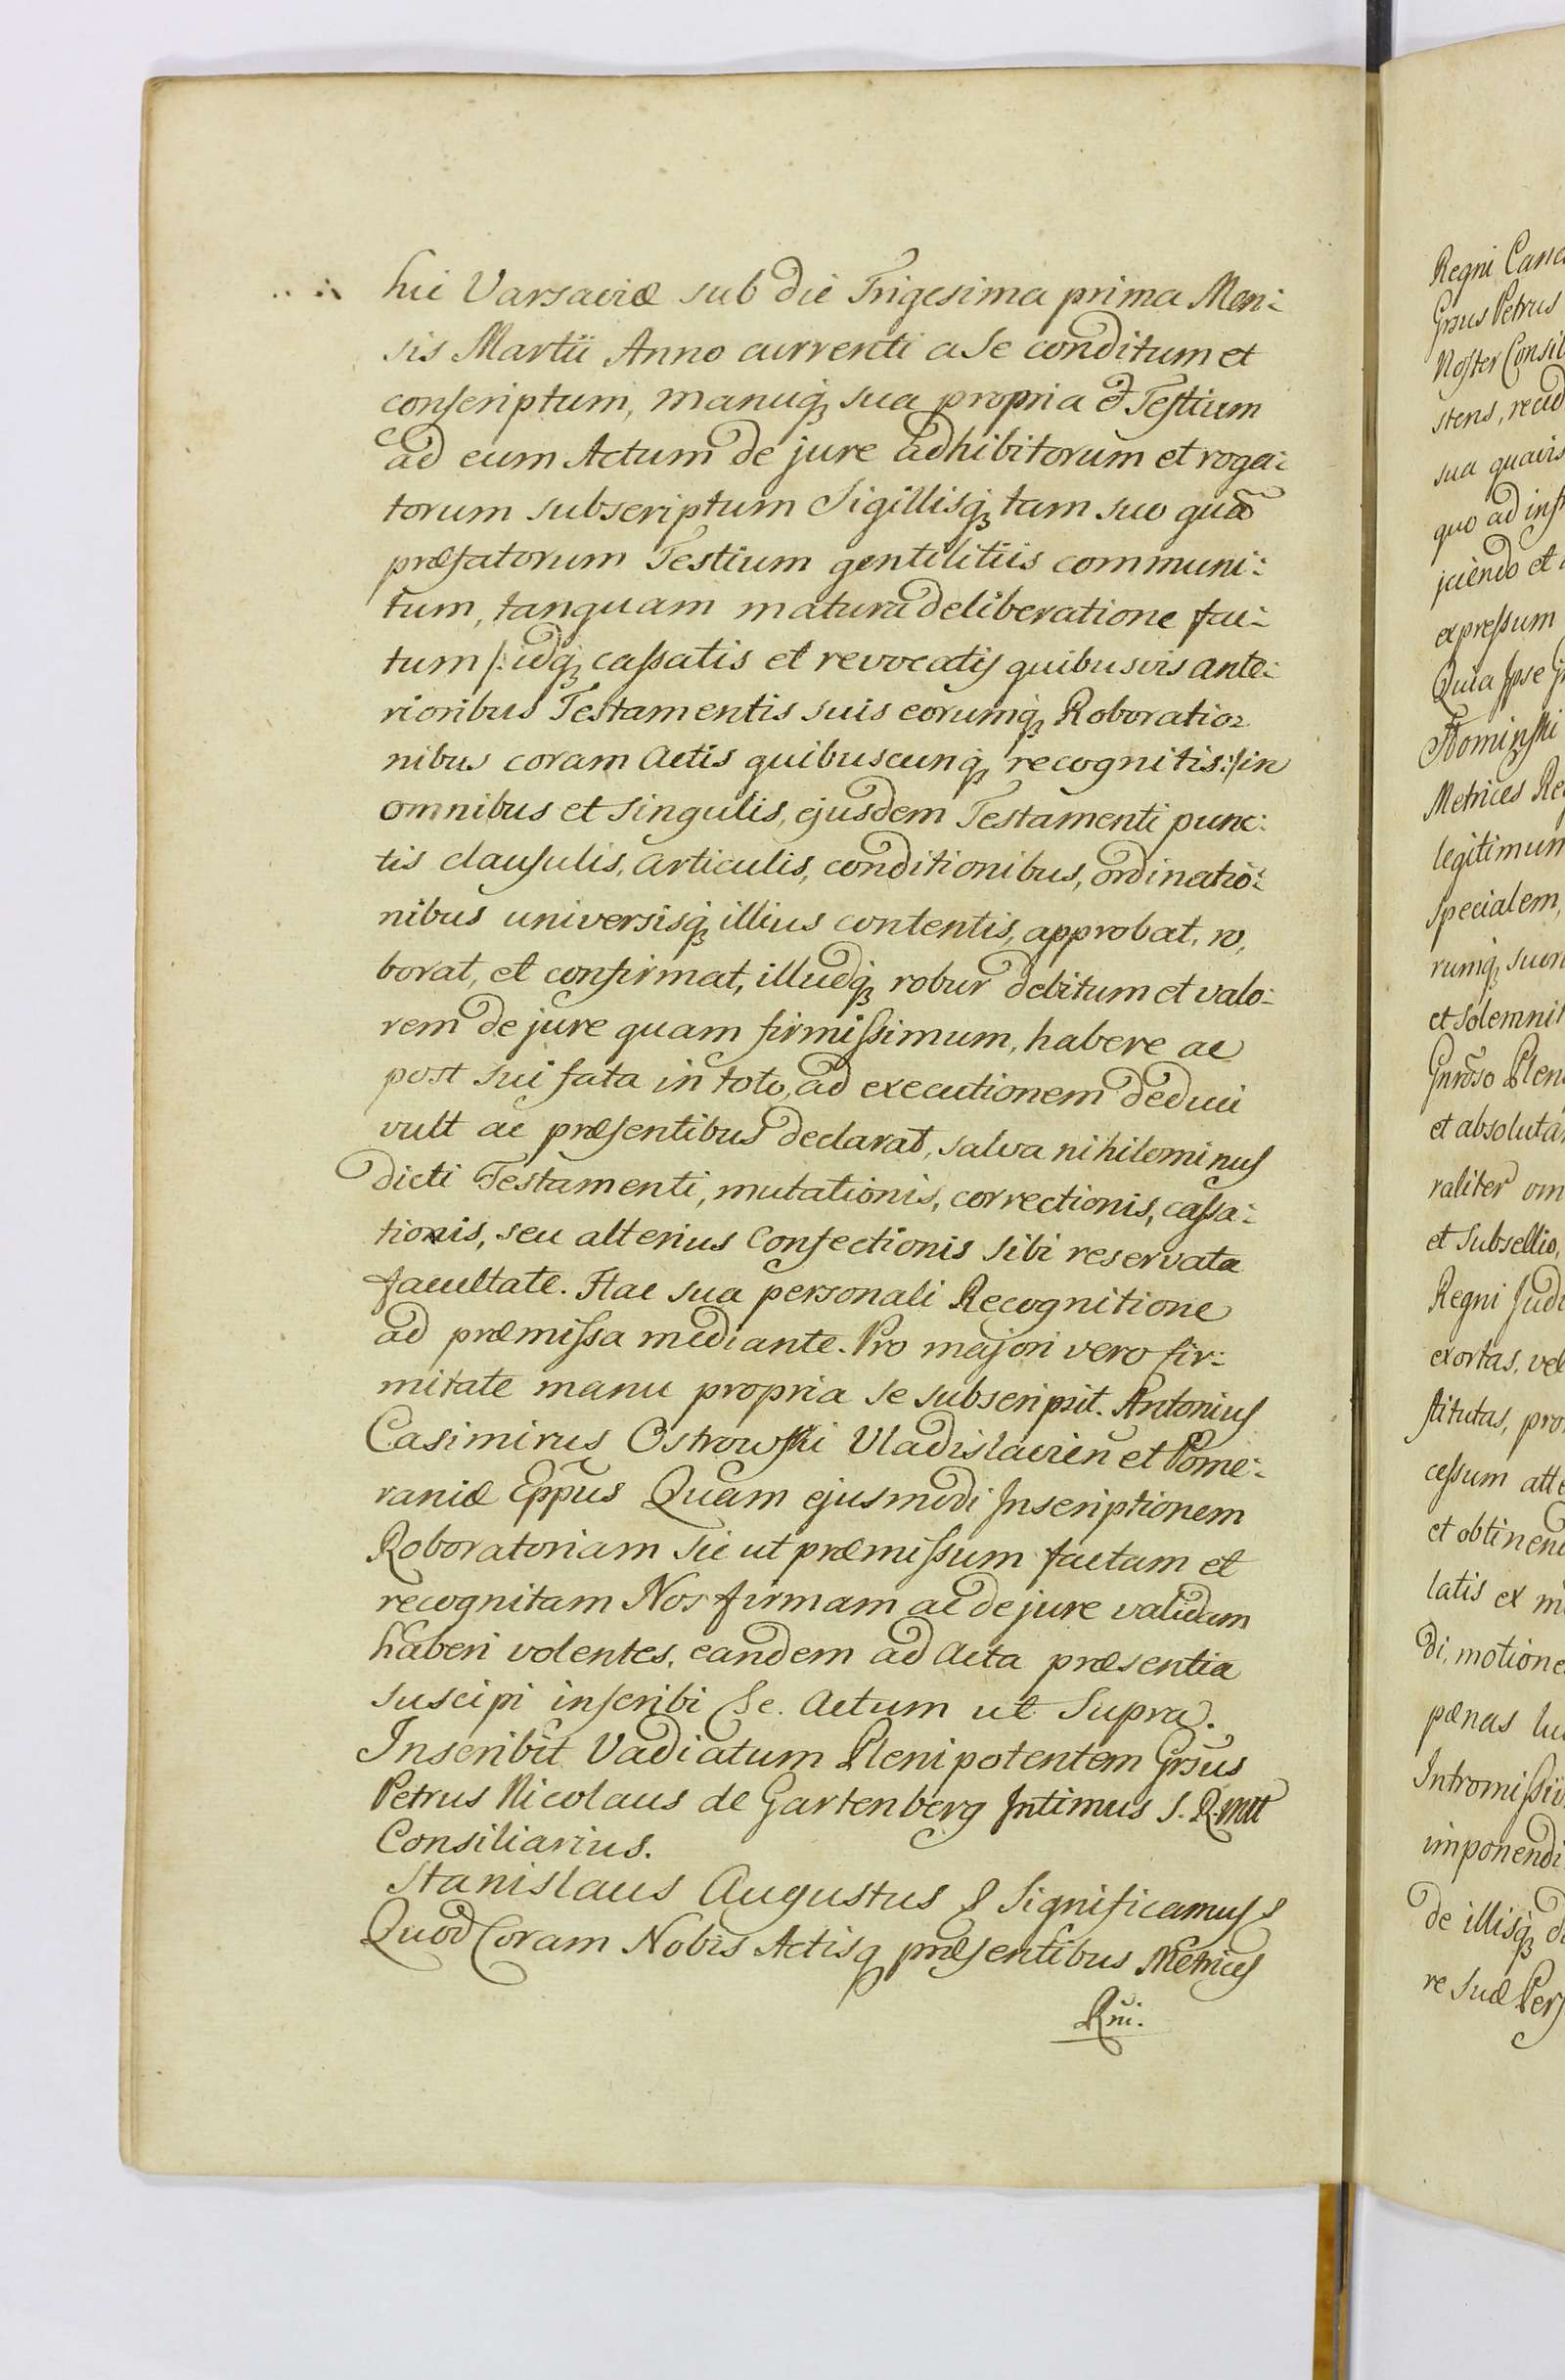 hic Varsaviæ sub die Trigesima prima Men:
sis Martii Anno currenti a Se conditum et
conscriptum, manuq; sua propria & Testium
ad eum Actum de jure adhibitorum et roga:
torum subscriptum Sigillisq; tam suo quā
præfatorum Testium gentilitiis communi:
tum, tanquam matura deliberatione fac:
tum /: idq; cassatis et revocatis quibusvis ante:
rioribus Testamentis suis eorumq; Roboratio:
nibus coram Actis quibuscunq; recognitis :/ in
omnibus et singulis, ejusdem Testamenti punc:
tis clausulis, articulis, conditionibus, ordinatio:
nibus universisq; illius contentis, approbat, ro,
borat, et confirmat, illudq; robur debitum et valo:
rem de jure quam firmissimum, habere ac
post sui fata in toto, ad executionem deduci
vult ac præsentibus declarat, salva nihilominus
dicti Testamenti, mutationis, correctionis, cassa:
tionis, seu alterius Confectionis sibi reservata
facultate. Hac sua personali Recognitione
ad præmissa mediante. Pro majori vero fir:
mitate manu propria se subscripsit. Antonius
Casimirus Ostrowski Vladislavien̄ et Pome:
raniæ Epp̄us Quam ejusmodi Inscriptionem
Roboratoriam sic ut præmissum factam et
recognitam Nos firmam ac de jure validam
haberi volentes, eandem ad Acta præsentia
suscipi inscribi &c. Actum ut Supra.
Inscribit Vadiatum Plenipotentem Grsūs
Petrus Nicolaus de Gartenberg Intimus S. R. Mtt
Consiliarius.
Stanislaus Augustus & Significamus &
Quod Coram Nobis Actisq præsentibus Metrices
Rni.
Regni Canc
Grsus Petrus
Noster Consil
stens, recid
sua quavis
quo ad
jciendo et
expressum
Quia Ipse

Metrices Re
legitimum
specialem,
rumq; suum
et solemni
Gnroso Plen
et absoluta
raliter om
et Subsellio,
Regni Judi
exortas, vel
stitutas, pro
cessum att
et obtinend
latis ex m
di, motione
pænas lu
Intromissi
imponendi
de illisq; d
re suæ Pers